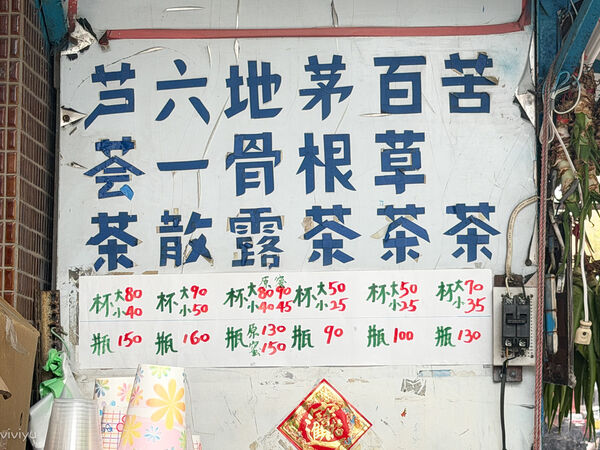 苦茶
百草茶
茅根茶
地骨露
六一散
芦荟茶
杯大80
小40
杯大90
小50
原蜜
杯大80 90
小40 45
杯大50
小25
杯大50
小25
杯大70
小35
瓶150
瓶160
瓶原130
蜜150
瓶90
瓶100
瓶130
viviyu